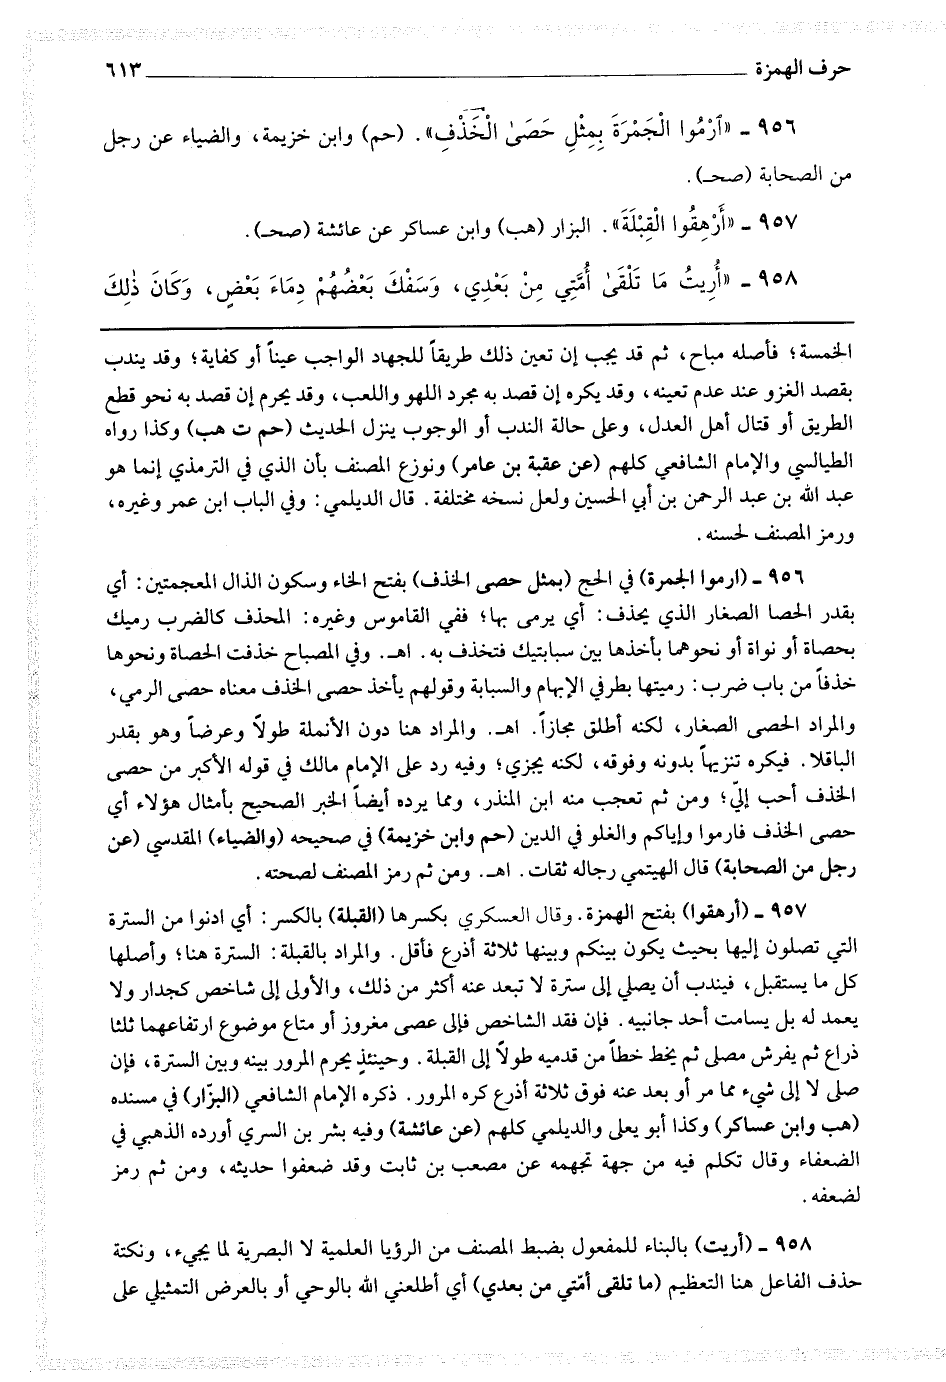 حرف الهمزة ٦١٣
٩٥٦ ـ «آرْمُوا الْجَمْرَةَ بِمِثْلِ حَصَىٰ الْخَذْفِ». (حم) وابن خزيمة، والضياء عن رجل
من الصحابة (صحـ).
٩٥٧ ـ «أَرْهِقُوا الْقِبْلَةَ». البزار (هب) وابن عساكر عن عائشة (صحـ).
٩٥٨ ـ «أُرِيتُ مَا تَلْقَىٰ أُمَّتِي مِنْ بَعْدِي، وَسَفْكَ بَعْضُهُمْ دِمَاءَ بَعْضٍ، وَكَانَ ذٰلِكَ
الخمسة؛ فأصله مباح، ثم قد يجب إن تعين ذلك طريقاً للجهاد الواجب عيناً أو كفاية؛ وقد يندب
بقصد الغزو عند عدم تعينه، وقد يكره إن قصد به مجرد اللهو واللعب، وقد يحرم إن قصد به نحو قطع
الطريق أو قتال أهل العدل، وعلى حالة الندب أو الوجوب ينزل الحديث (حم ت هب) وكذا رواه
الطيالسي والإمام الشافعي كلهم (عن عقبة بن عامر) ونوزع المصنف بأن الذي في الترمذي إنما هو
عبد الله بن عبد الرحمن بن أبي الحسين ولعل نسخه مختلفة. قال الديلمي: وفي الباب ابن عمر وغيره،
ورمز المصنف لحسنه.
٩٥٦ ـ (ارموا الجمرة) في الحج (بمثل حصى الخذف) بفتح الخاء وسكون الذال المعجمتين: أي
بقدر الحصا الصغار الذي يحذف: أي يرمى بها؛ ففي القاموس وغيره: المحذف كالضرب رميك
بحصاة أو نواة أو نحوهما بأخذها بين سبابتيك فتخذف به. اهـ. وفي المصباح خذفت الحصاة ونحوها
خذفاً من باب ضرب: رميتها بطرفي الإبهام والسبابة وقولهم يأخذ حصى الخذف معناه حصى الرمي،
والمراد الحصى الصغار، لكنه أطلق مجازاً. اهـ. والمراد هنا دون الأنملة طولاً وعرضاً وهو بقدر
الباقلا. فيكره تنزيهاً بدونه وفوقه، لكنه يجزي؛ وفيه رد على الإمام مالك في قوله الأكبر من حصى
الخذف أحب إليّ؛ ومن ثم تعجب منه ابن المنذر، ومما يرده أيضاً الخبر الصحيح بأمثال هؤلاء أي
حصى الخذف فارموا وإياكم والغلو في الدين (حم وابن خزيمة) في صحيحه (والضياء) المقدسي (عن
رجل من الصحابة) قال الهيتمي رجاله ثقات. اهـ. ومن ثم رمز المصنف لصحته.
٩٥٧ ـ (أرهقوا) بفتح الهمزة. وقال العسكري بكسرها (القبلة) بالكسر: أي ادنوا من السترة
التي تصلون إليها بحيث يكون بينكم وبينها ثلاثة أذرع فأقل. والمراد بالقبلة: السترة هنا؛ وأصلها
كل ما يستقبل، فيندب أن يصلي إلى سترة لا تبعد عنه أكثر من ذلك، والأولى إلى شاخص كجدار ولا
يعمد له بل يسامت أحد جانبيه. فإن فقد الشاخص فإلى عصى مغروز أو متاع موضوع ارتفاعهما ثلثا
ذراع ثم يفرش مصلى ثم يخط خطاً من قدميه طولاً إلى القبلة. وحينئذٍ يحرم المرور بينه وبين السترة، فإن
صلى لا إلى شيء مما مر أو بعد عنه فوق ثلاثة أذرع كره المرور. ذكره الإمام الشافعي (البزّار) في مسنده
(هب وابن عساكر) وكذا أبو يعلى والديلمي كلهم (عن عائشة) وفيه بشر بن السري أورده الذهبي في
الضعفاء وقال تكلم فيه من جهة تجهمه عن مصعب بن ثابت وقد ضعفوا حديثه، ومن ثم رمز
لضعفه.
٩٥٨ ـ (أريت) بالبناء للمفعول بضبط المصنف من الرؤيا العلمية لا البصرية لما يجيء، ونكتة
حذف الفاعل هنا التعظيم (ما تلقى أمّتي من بعدي) أي أطلعني الله بالوحي أو بالعرض التمثيلي على